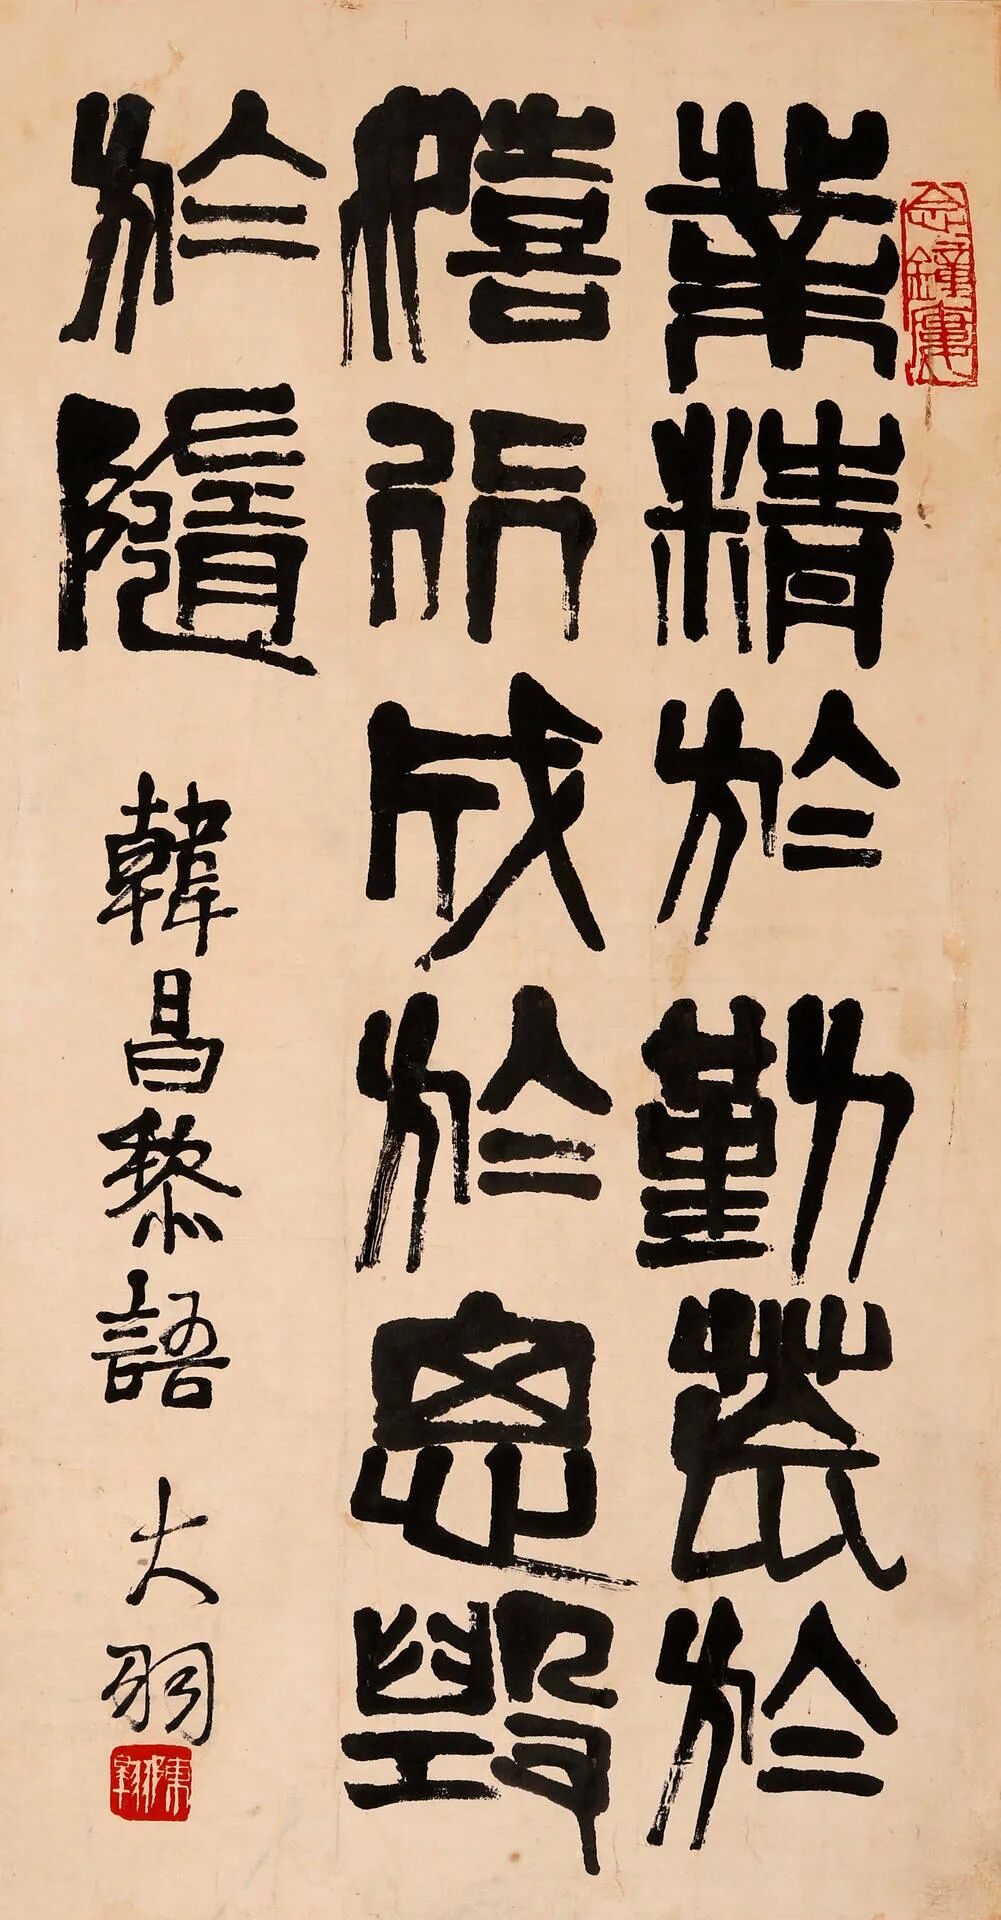 業精於勤荒於
嬉行成於思毀
於隨
韓昌黎語 大羽
陳翱